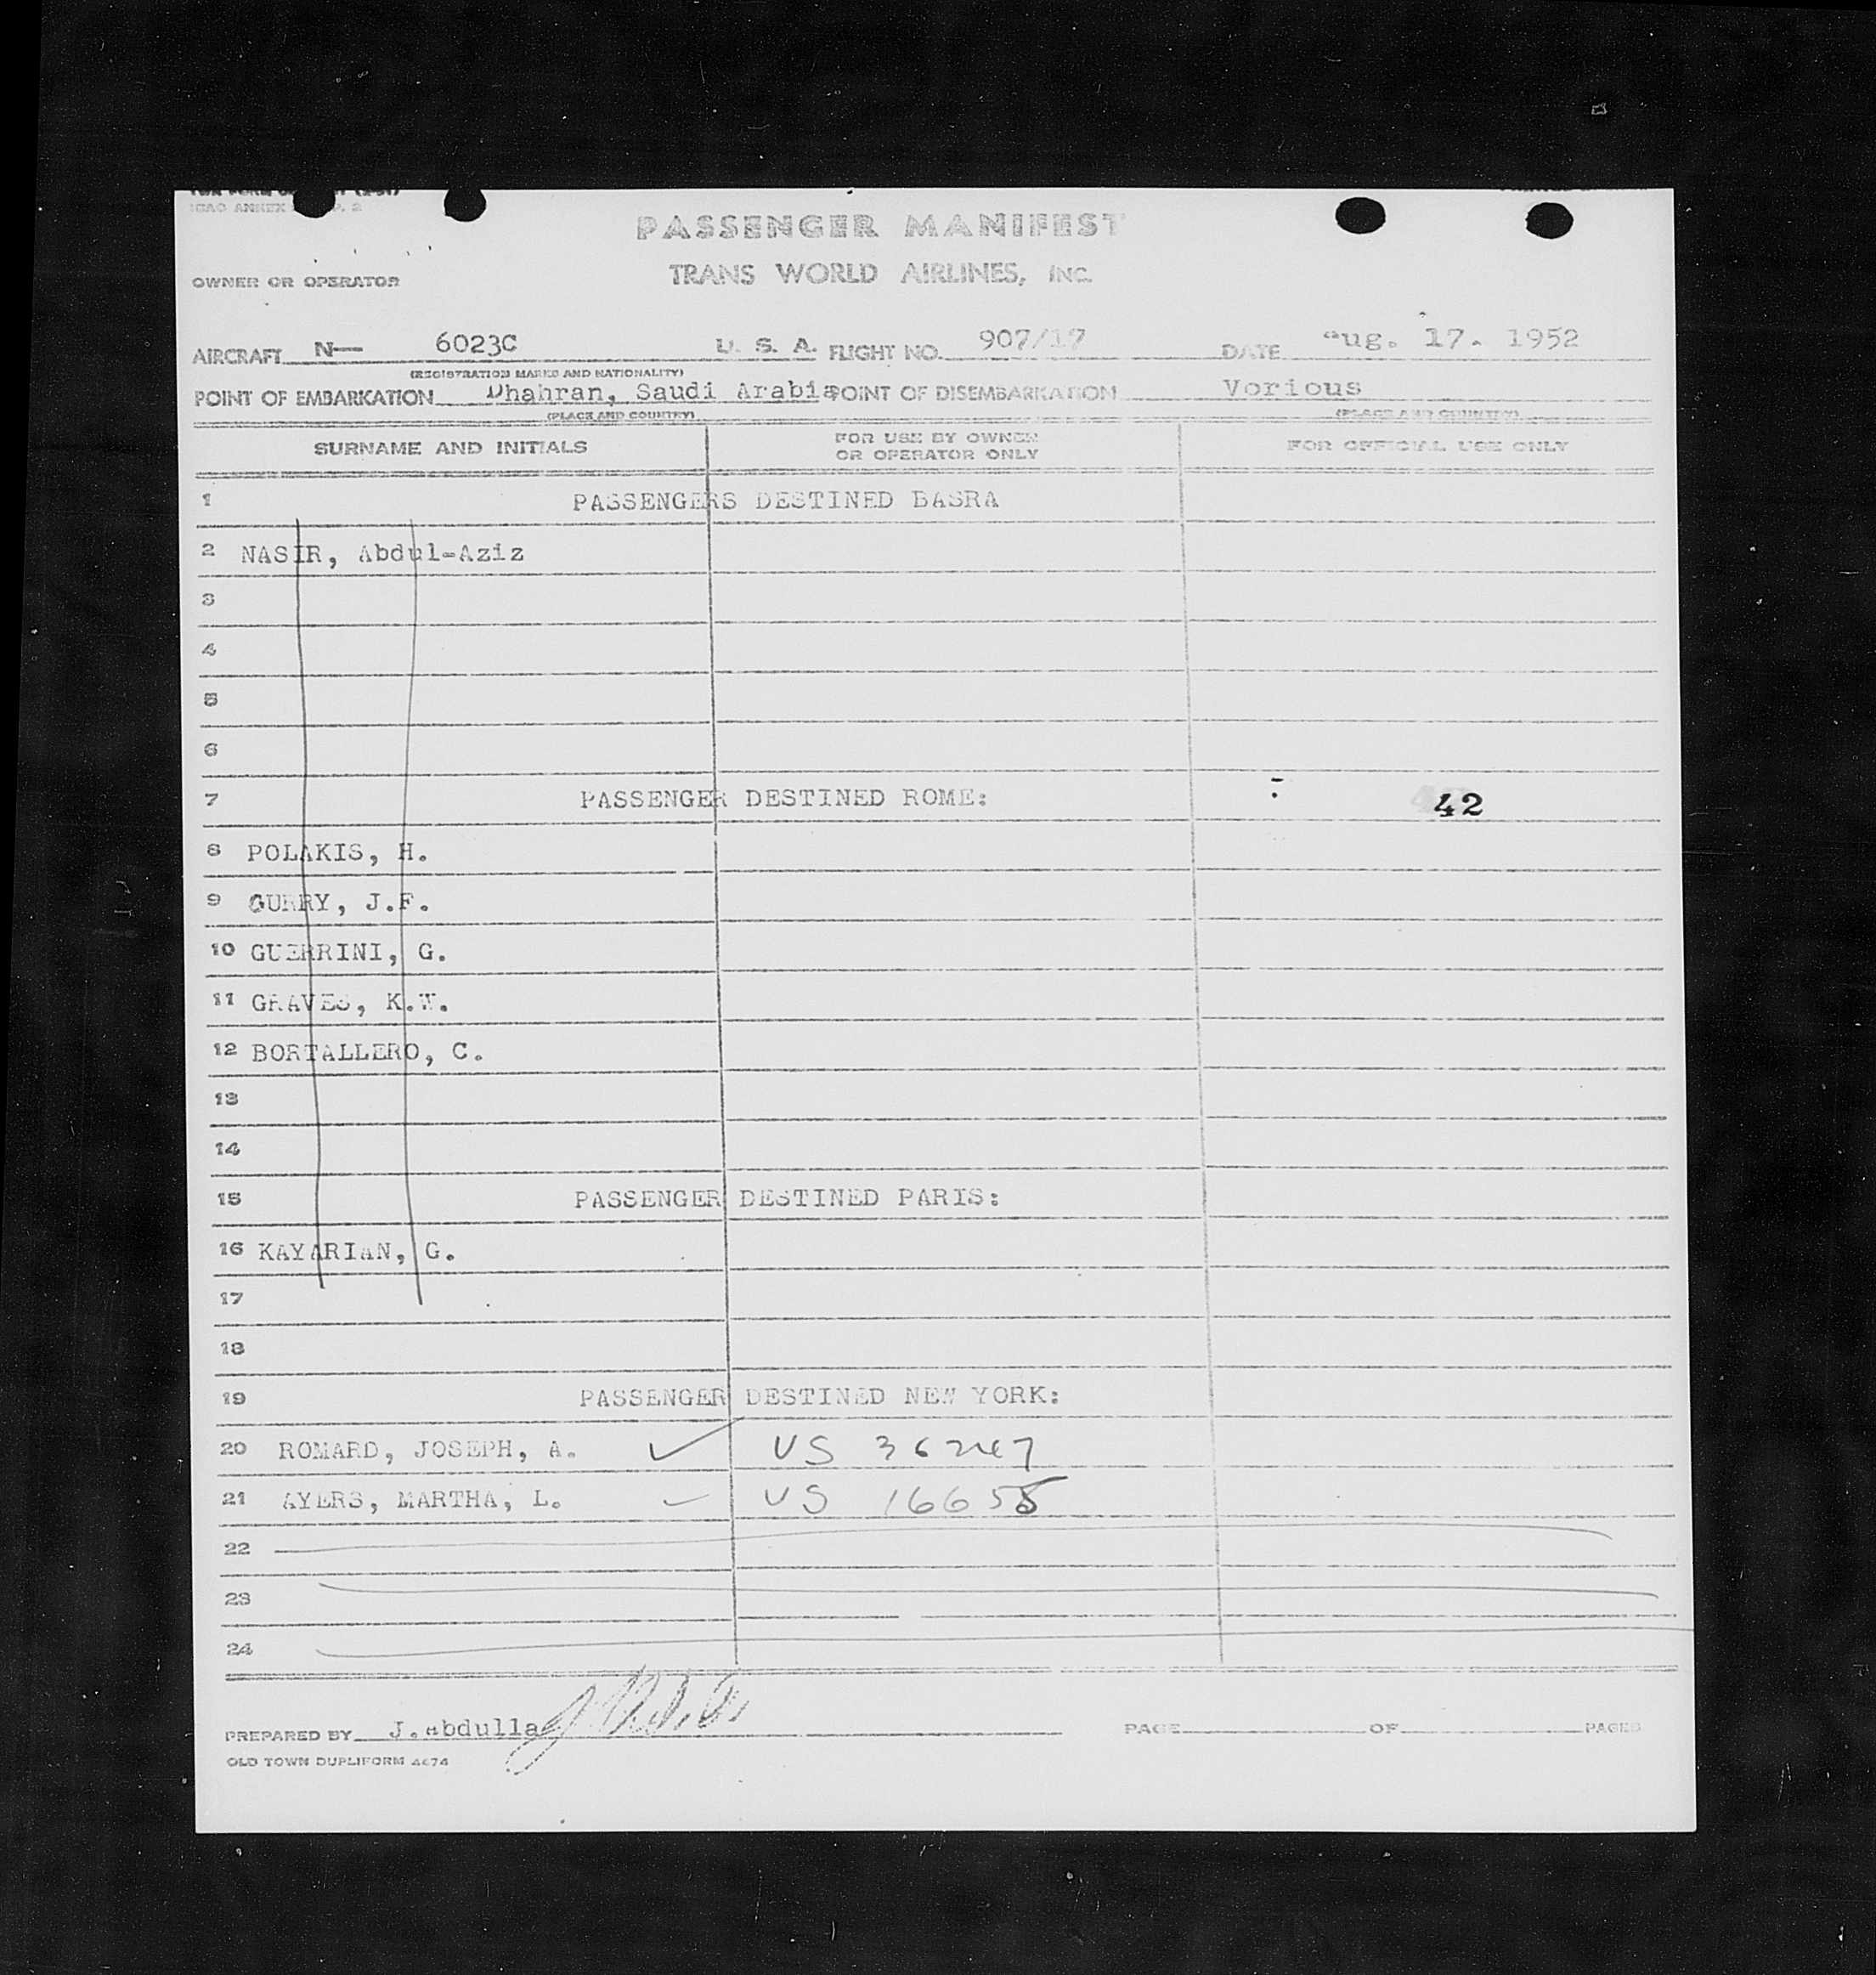 ICAO ANNEX P. 2
PASSENGER MANIFEST
OWNER OR OPERATOR TRANS WORLD AIRLINES, INC.
AIRCRAFT N— 6023C U. S. A. FLIGHT NO. 907/17 DATE Aug. 17. 1952
(REGISTRATION MARKS AND NATIONALITY)
POINT OF EMBARKATION Dhahran, Saudi Arabia POINT OF DISEMBARKATION Vorious
(PLACE AND COUNTRY) (PLACE AND COUNTRY)
SURNAME AND INITIALS FOR USE BY OWNER OR OPERATOR ONLY FOR OFFICIAL USE ONLY
1 PASSENGERS DESTINED BASRA
2 NASIR, Abdul-Aziz
3
4
5
6
7 PASSENGER DESTINED ROME: 42
8 POLAKIS, H.
9 GURRY, J.F.
10 GUERRINI, G.
11 GRAVES, K.W.
12 BORTALLERO, C.
13
14
15 PASSENGER DESTINED PARIS:
16 KAYARIAN, G.
17
18
19 PASSENGER DESTINED NEW YORK:
20 ROMARD, JOSEPH, A. US
21 AYERS, MARTHA, L. US
22
23
24
PREPARED BY J. Abdulla PAGE OF PAGES
OLD TOWN DUPLIFORM